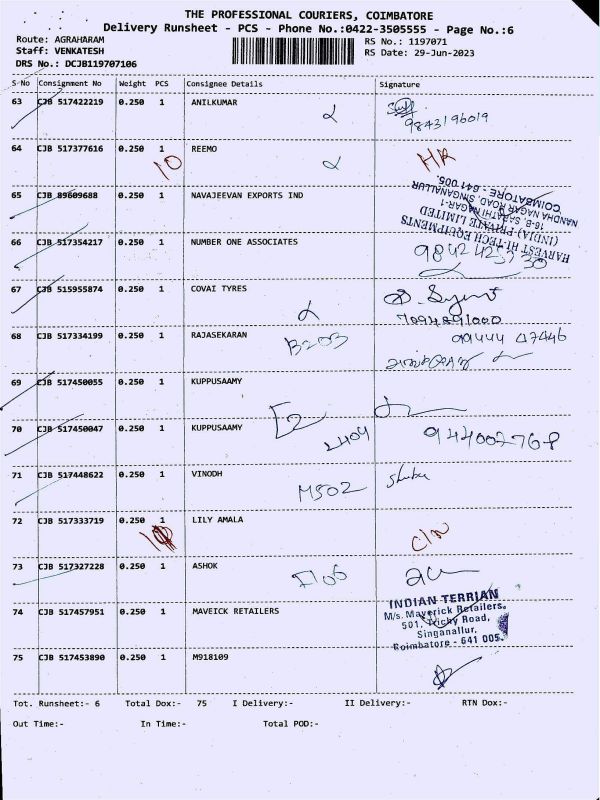 THE PROFESSIONAL COURIERS, COIMBATORE
Delivery Runsheet - PCS - Phone No.:0422-3505555 - Page No.:6
Route: AGRAHARAM
RS No.: 1197071
Staff: VENKATESH
RS Date: 29-Jun-2023
DRS No.: DCJB119707106
S-No Consignment No Weight PCS Consignee Details Signature
63 CJB 517422219 0.250 1 ANILKUMAR
9843196019
64 CJB 517377616 0.250 1 REEMO
10 HR
65 CJB 89609688 0.250 1 NAVAJEEVAN EXPORTS IND
HARVEST HI-TECH EQUIPMENTS
(INDIA) PRIVATE LIMITED
16-B, SARATHI NAGAR-1
NANDHA NAGAR ROAD, SINGANALLUR
COIMBATORE - 641 005.
66 CJB 517354217 0.250 1 NUMBER ONE ASSOCIATES
67 CJB 515955874 0.250 1 COVAI TYRES
7094891000
68 CJB 517334199 0.250 1 RAJASEKARAN B203 99444 47446
69 CJB 517450055 0.250 1 KUPPUSAAMY
70 CJB 517450047 0.250 1 KUPPUSAAMY
944002768
71 CJB 517448622 0.250 1 VINODH
M502
72 CJB 517333719 0.250 1 LILY AMALA
10 C/N
73 CJB 517327228 0.250 1 ASHOK
F106
74 CJB 517457951 0.250 1 MAVEICK RETAILERS
INDIAN TERRIAN
M/s. Maverick Retailers.
501, Trichy Road,
Singanallur,
Coimbatore - 641 005.
75 CJB 517453890 0.250 1 M918109
Tot. Runsheet:- 6 Total Dox:- 75 I Delivery:- II Delivery:- RTN Dox:-
Out Time:- In Time:- Total POD:-